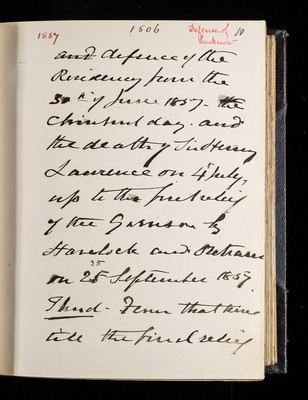 1857 1506 Defence of Lucknow 10
and defence of the
Residency from the
30th of June 1857 - the
Chinhut day - and
the death of Sir Henry
Lawrence on 4 July,
up to the first relief
of the Garrison by
Havelock and Outram
on 25 September 1857
Third - From that time
till the final relief